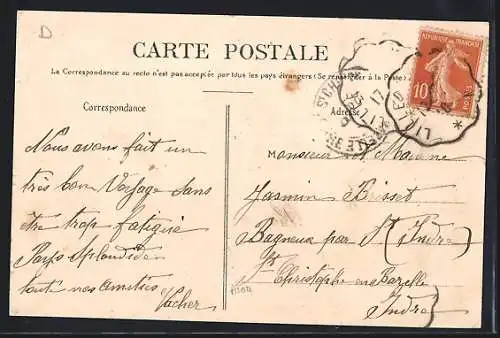 D
CARTE POSTALE
La Correspondance au recto n'est pas acceptée par tous les pays étrangers (Se renseigner à la Poste)
REPUBLIQUE FRANÇAISE
10
POSTES
Correspondance
Adresse
Nous avons fait un
très bon Voyage sans
être trop fatigué
Pays splendides
tout nos amitiés
Vacher
Monsieur et Madame
Jasmin Brisset
Bagneux par St (Indre)
St Christophe en Bazelle
Indre